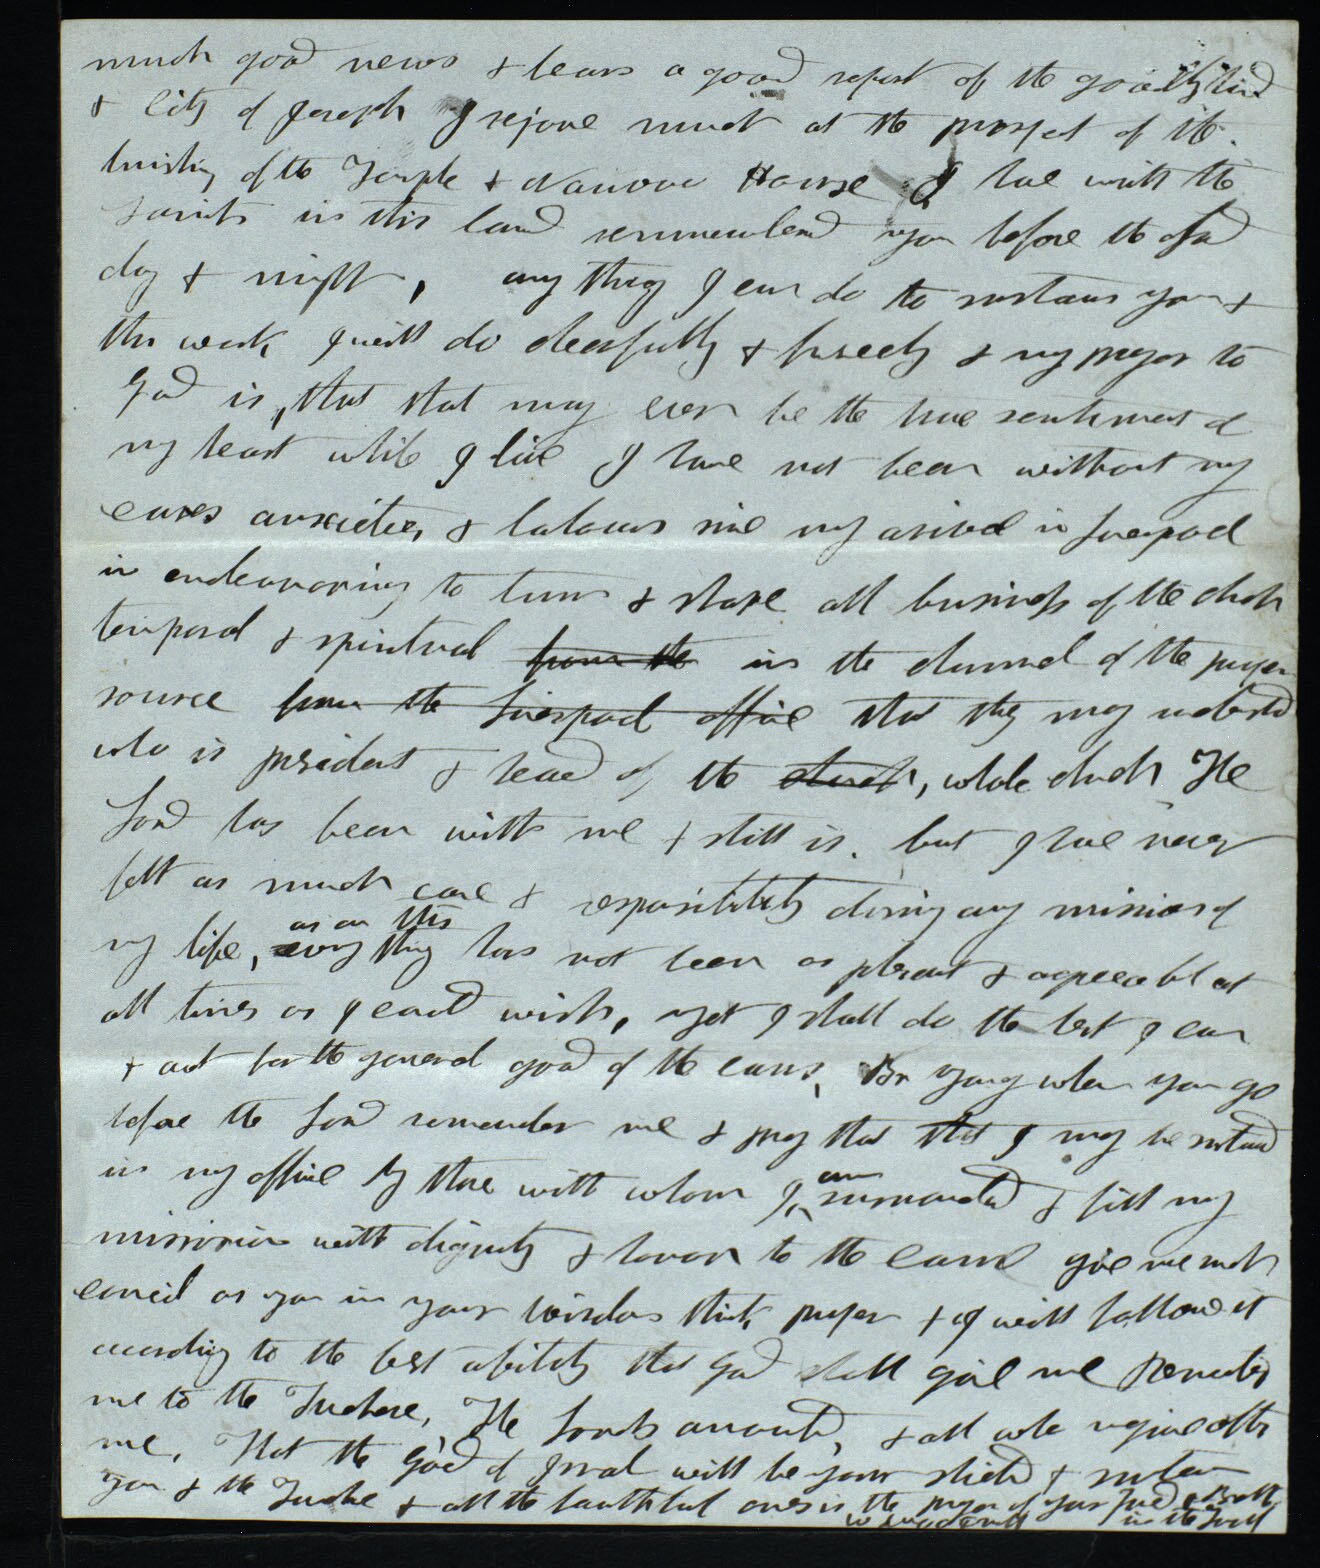 much good news & hears a good report of the good
& City of Joseph I rejoice much at the prospect of the
finishing of the Temple & Nauvoo House I have with the
Saints in this land rememberd you before the Lord
day & night, any thing I can do to sustain you &
this work I will do chearfully & freely & my prayer to
God is, that that may ever be the true sentiment of
my heart while I live I have not been without my
cares anxieties & labours since my arival in Liverpool
in endeavoring to turn & shape all business of the church
temporal & spiritual from the in the channel of the proper
source from the Liverpool office that they may understand
who is president & head of the church, whole church The
Lord has been with me & still is. but I have never
felt as much care & responsibility during any mission of
my life, as on this every thing has not been as pleasant & agreeable at
all times as I could wish, yet I shall do the best I can
& act for the general good of the cause, Br Young when you go
before the Lord remember me & pray that that I may be sustaind
in my office by those with whom I am surrounded & fill my
mission with dignity & honor to the cause give me such
council as you in your wisdom think proper & I will follow it
according to the best ability that God shall give me Remember
me to the Twelve, The Lords anointed, & all who inquire after
me, That the God of Israel will be your shield & sustain
you & the Twelve & all the faithful ones is the prayer of your Friend & Brother
W Woodruff in the Lord